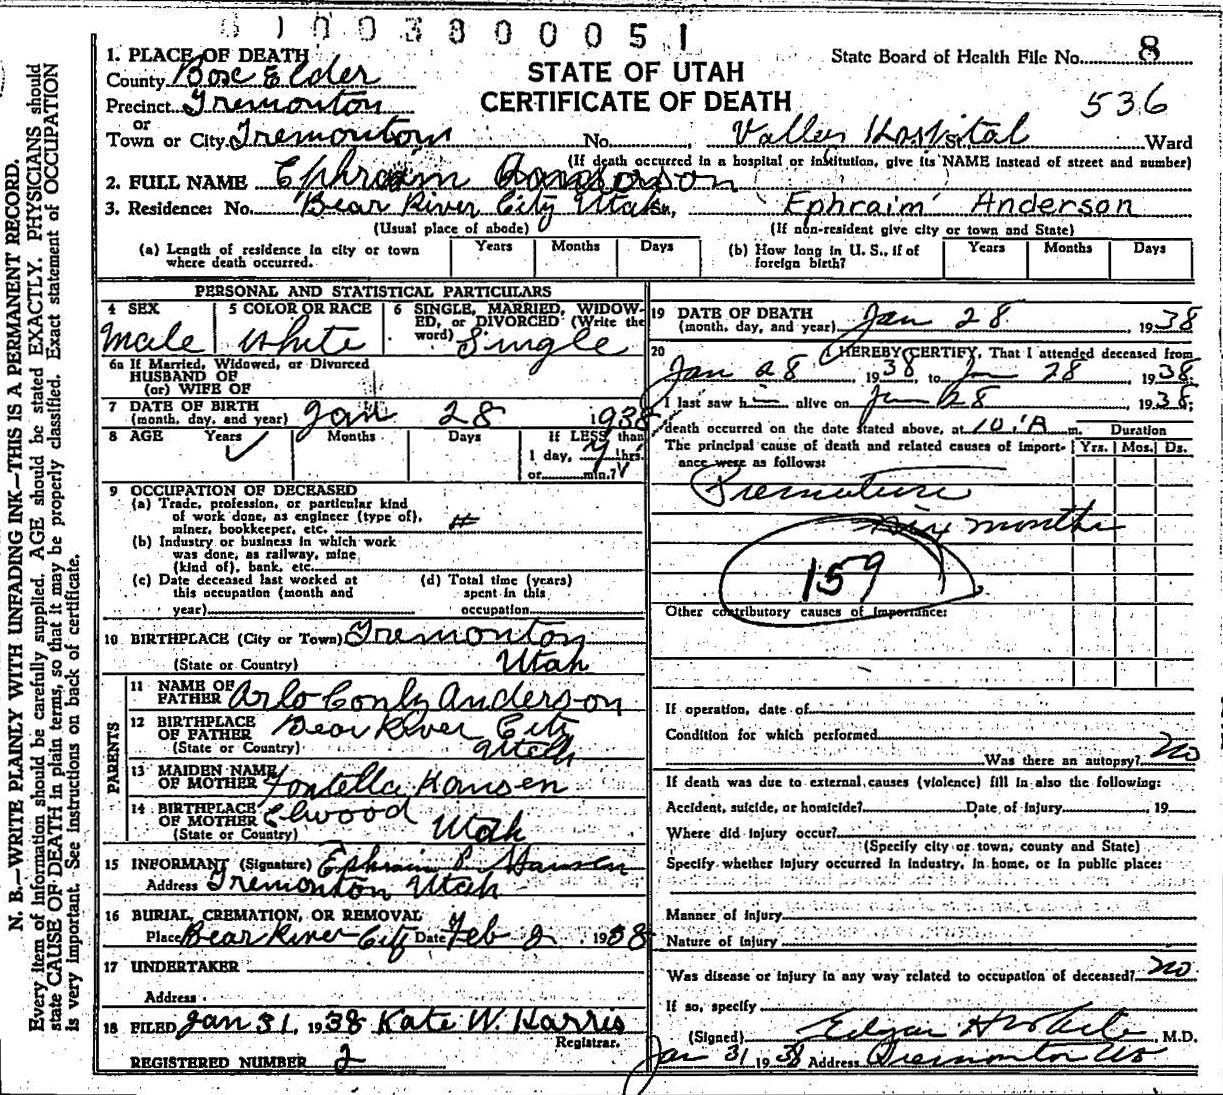 0 1 0 0 3 8 0 0 0 5 1
State Board of Health File No. 8
STATE OF UTAH
CERTIFICATE OF DEATH
536
1. PLACE OF DEATH
County Box Elder
Precinct Tremonton
or
Town or City Tremonton No. Valley Hospital St. Ward
(If death occurred in a hospital or institution, give its NAME instead of street and number)
2. FULL NAME Ephraim Anderson
3. Residence: No. Bear River City Utah St., Ephraim Anderson
(Usual place of abode) (If non-resident give city or town and State)
(a) Length of residence in city or town where death occurred. Years Months Days
(b) How long in U. S., if of foreign birth? Years Months Days
PERSONAL AND STATISTICAL PARTICULARS
4 SEX Male
5 COLOR OR RACE white
6 SINGLE, MARRIED, WIDOW-
ED, or DIVORCED (Write the
word) Single
6a If Married, Widowed, or Divorced
HUSBAND OF
(or) WIFE OF
7 DATE OF BIRTH
(month, day, and year) Jan 28 1938
8 AGE Years Months Days If LESS than
1 day, hrs.
or min.?
9 OCCUPATION OF DECEASED
(a) Trade, profession, or particular kind
of work done, as engineer (type of),
miner, bookkeeper, etc.
(b) Industry or business in which work
was done, as railway, mine
(kind of), bank, etc.
(c) Date deceased last worked at
this occupation (month and
year)
(d) Total time (years)
spent in this
occupation
10 BIRTHPLACE (City or Town) Tremonton
(State or Country) Utah
PARENTS
11 NAME OF
FATHER Arlo Conly Anderson
12 BIRTHPLACE
OF FATHER Bear River City
(State or Country) Utah
13 MAIDEN NAME
OF MOTHER Fontella Hansen
14 BIRTHPLACE
OF MOTHER Elwood
(State or Country) Utah
15 INFORMANT (Signature) Ephraim P. Hansen
Address Tremonton Utah
16 BURIAL, CREMATION, OR REMOVAL
Place Bear River City Date Feb 2, 1938
17 UNDERTAKER
Address
18 FILED Jan 31, 1938 Kate W. Harris
Registrar.
REGISTERED NUMBER 2
19 DATE OF DEATH
(month, day, and year) Jan 28, 1938
20 I HEREBY CERTIFY, That I attended deceased from
Jan 28, 1938, to Jan 28, 1938,
I last saw h alive on Jan 28, 1938;
death occurred on the date stated above, at 10:A m. Duration
The principal cause of death and related causes of import-
ance were as follows:
Yrs. Mos. Ds.
Premature
six months
159
Other contributory causes of importance:
If operation, date of
Condition for which performed
Was there an autopsy? no
If death was due to external causes (violence) fill in also the following:
Accident, suicide, or homicide? Date of injury , 19
Where did injury occur?
(Specify city or town, county and State)
Specify whether injury occurred in industry, in home, or in public place:
Manner of injury
Nature of injury
Was disease or injury in any way related to occupation of deceased? no
If so, specify
(Signed) Edgar H White, M.D.
Jan 31 1938 Address Tremonton
N. B.—WRITE PLAINLY WITH UNFADING INK—THIS IS A PERMANENT RECORD.
Every item of information should be carefully supplied. AGE should be stated EXACTLY. PHYSICIANS should
state CAUSE OF DEATH in plain terms, so that it may be properly classified. Exact statement of OCCUPATION
is very important. See instructions on back of certificate.